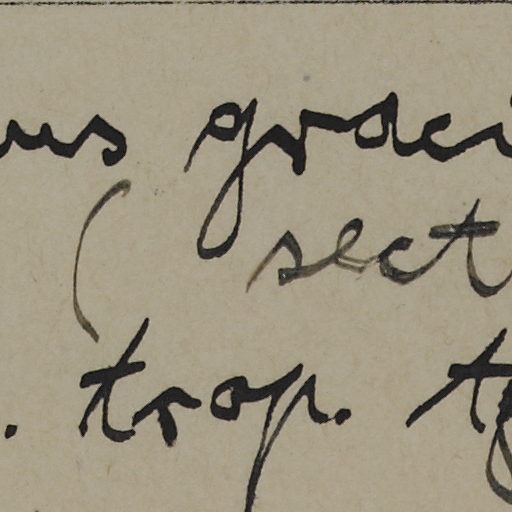 us graci
( sect
. trop. t